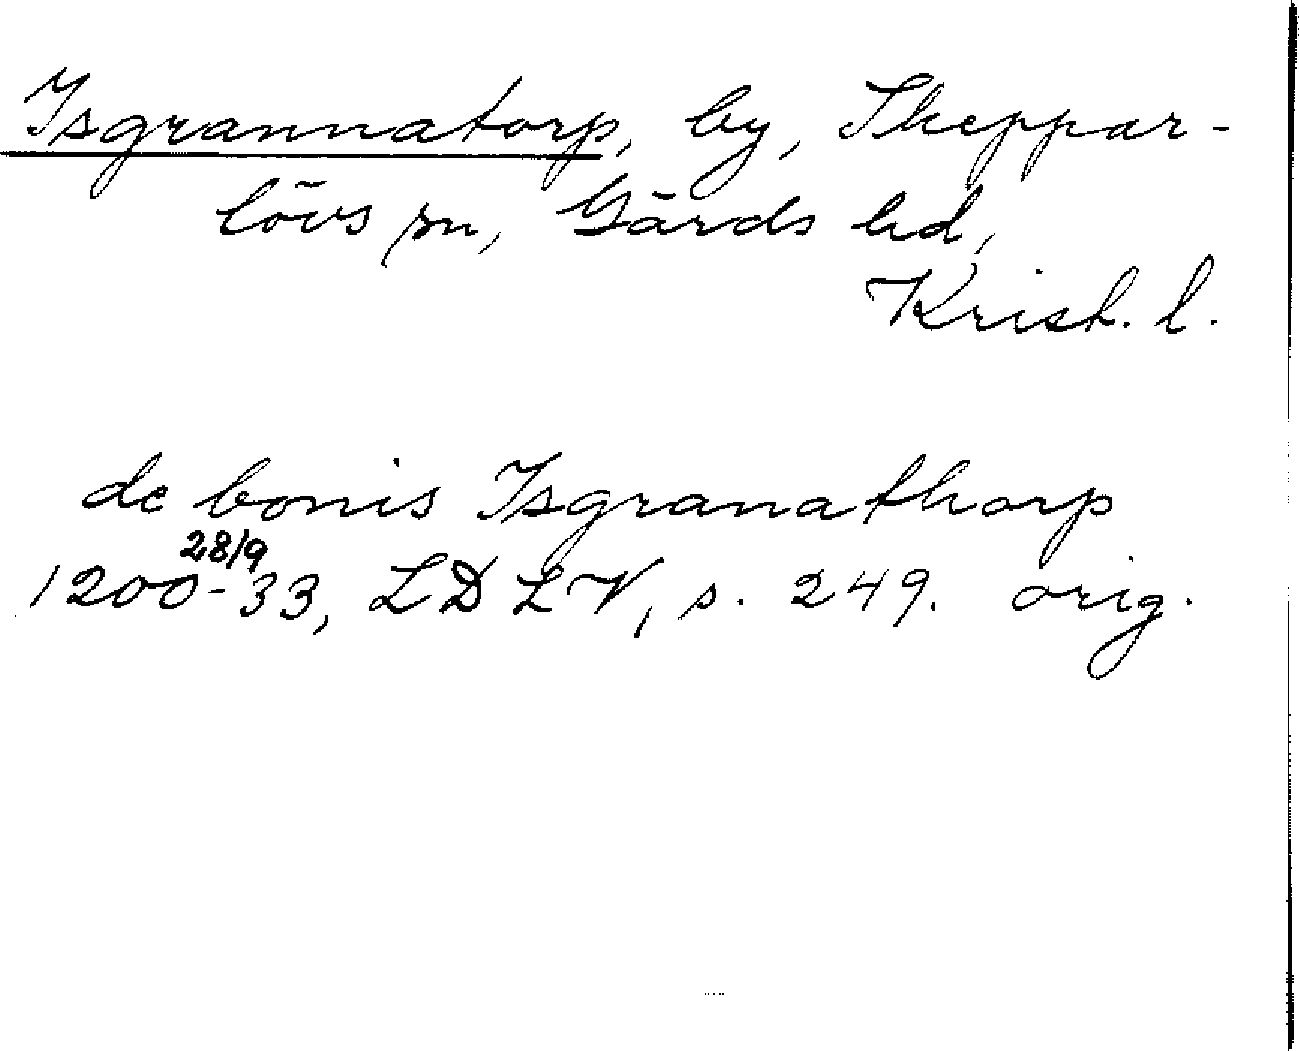 Isgrannatorp, by, Skeppar-
lövs sn, Gärds hd,
Krist. l.
de bonis Isgranathorp
28/9
1200-33, LDLV, s. 249. orig.